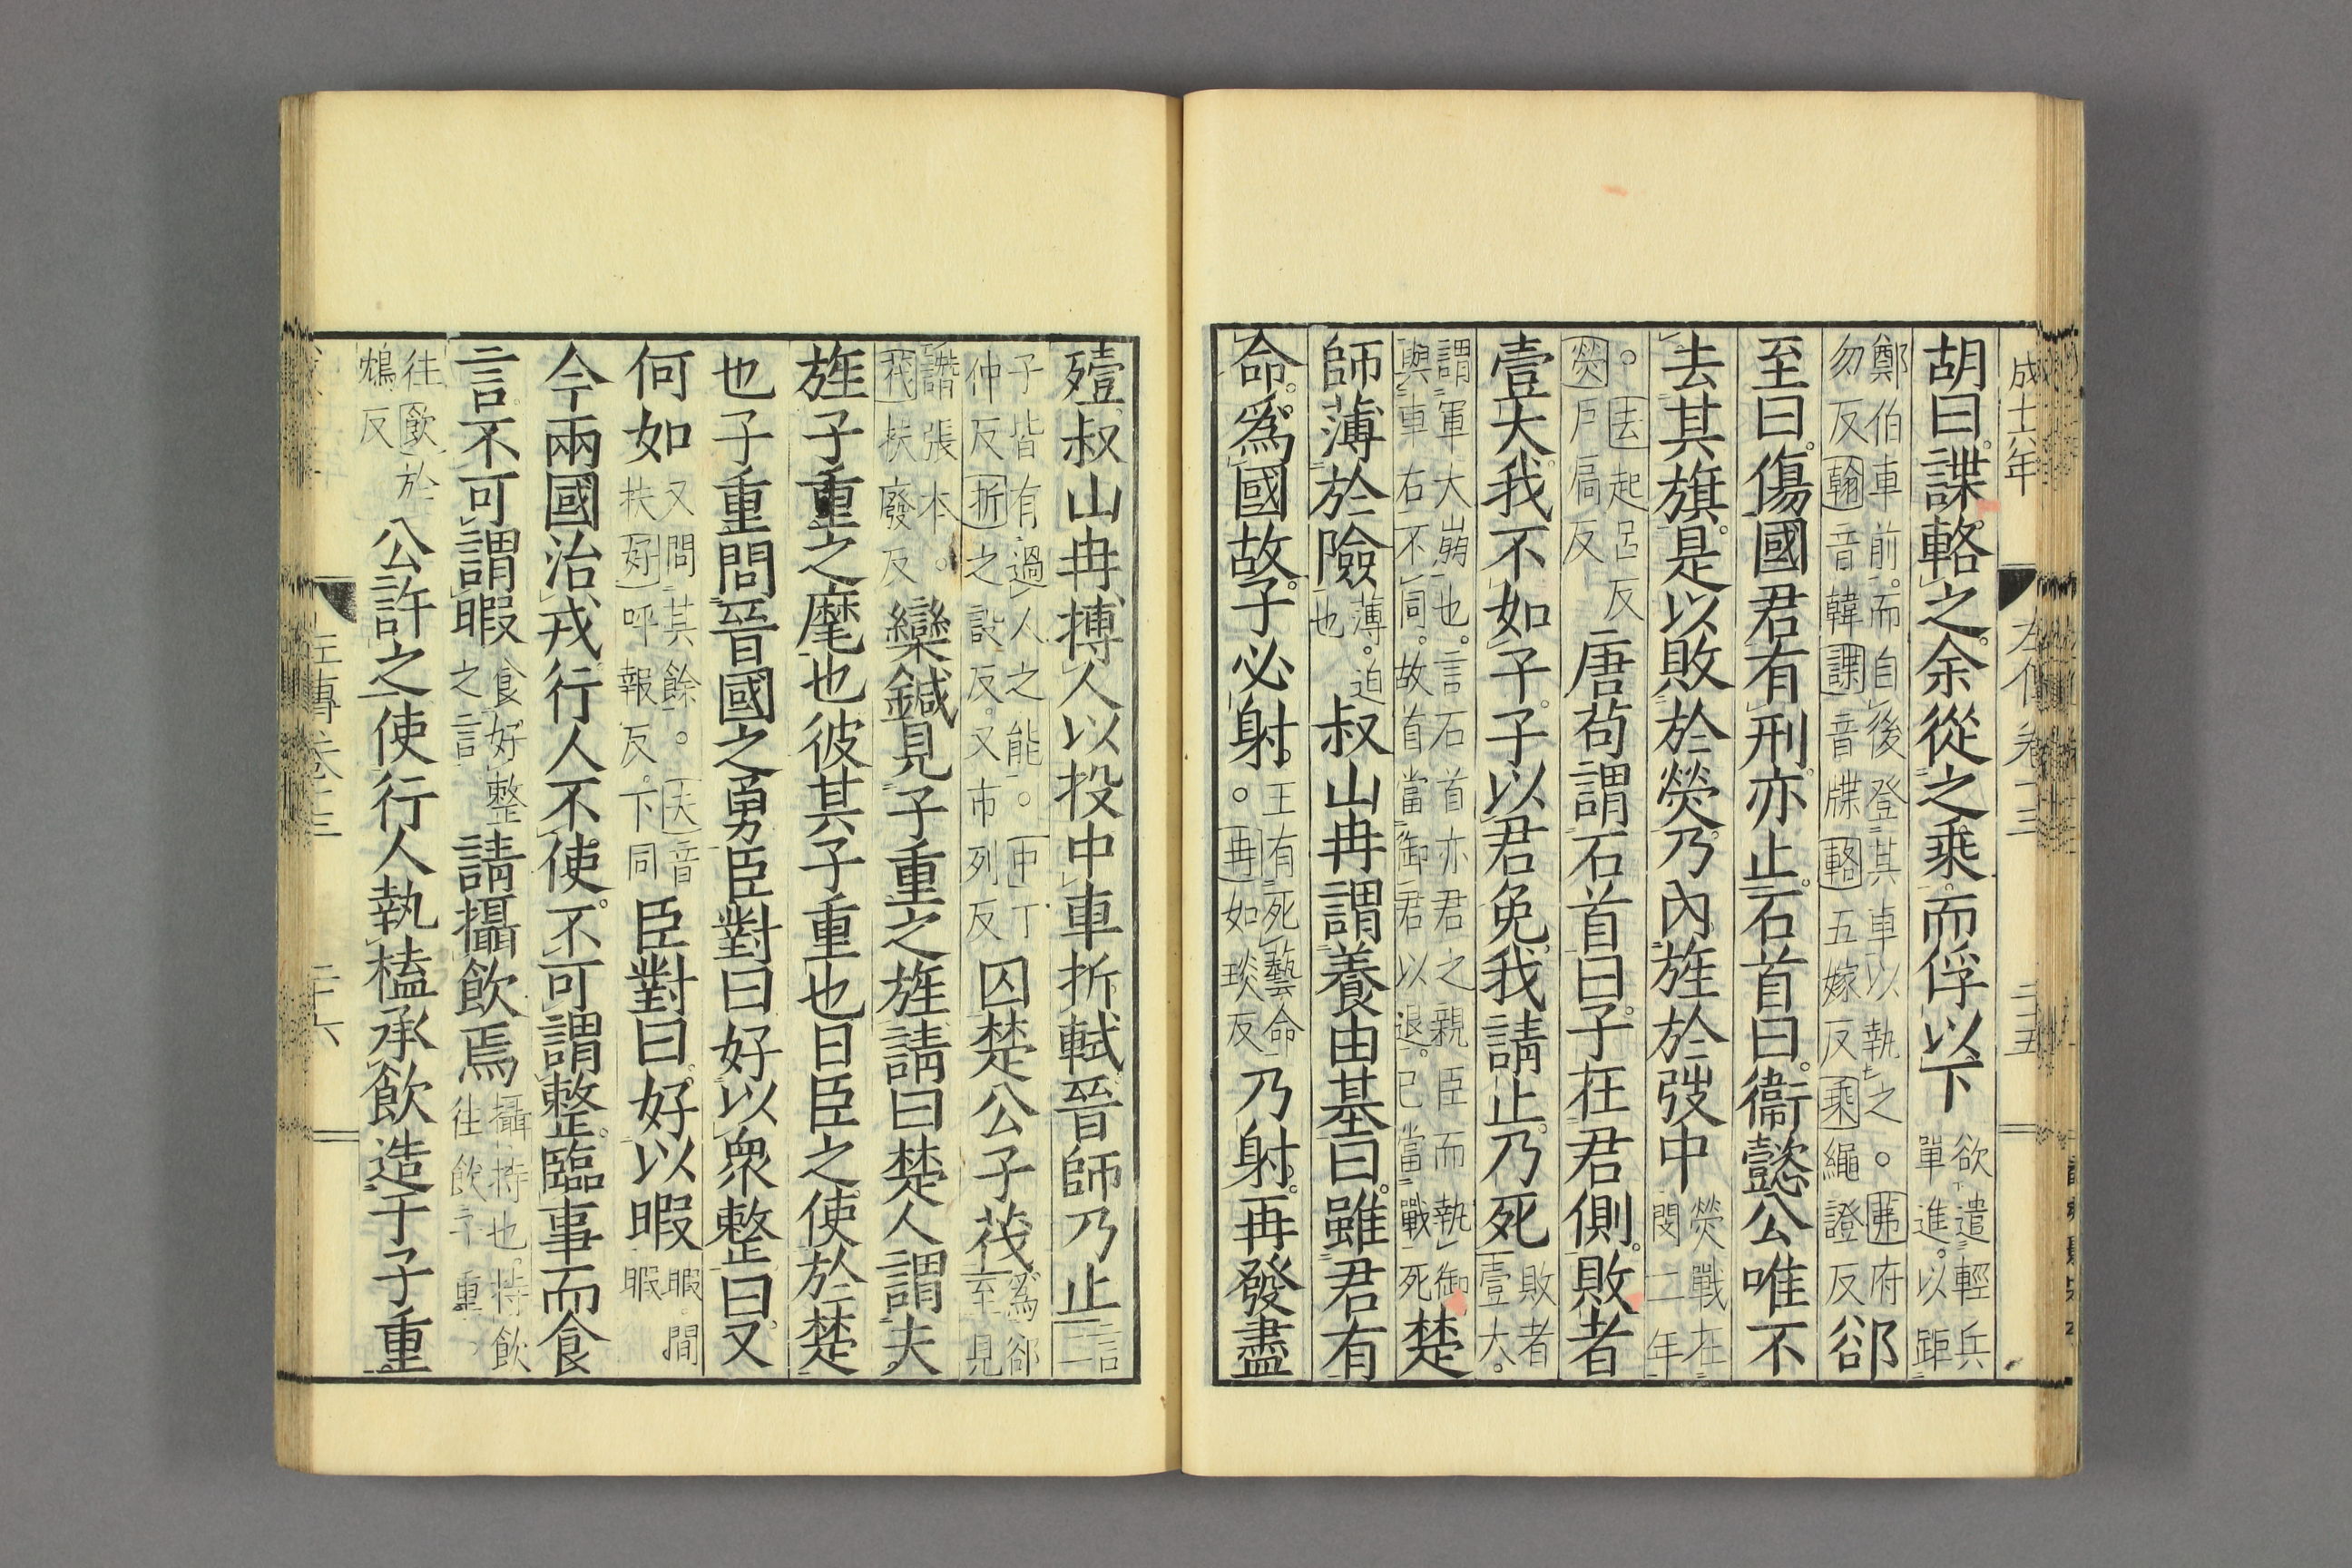 成十六年 左傳卷十三 二十五
胡曰。諜輅之。余從之乘。而俘以下欲遣輕兵單進。以距
鄭伯車前。而自後登其車以執之。○茀府勿反翰音韓諜音牒輅五嫁反乘繩證反郤
至曰。傷國君有刑。亦止。石首曰。衞懿公唯不
去其旗。是以敗於熒。乃內旌於弢中熒戰在閔二年
○去起呂反熒戶扃反唐苟謂石首曰。子在君側。敗者
壹大。我不如子。子以君免。我請止。乃死敗者壹大。
謂軍大崩也。言石首亦君之親臣而執御與車右不同。故首當御君以退。己當戰死楚
師薄於險薄。迫也叔山冉謂養由基曰。雖君有
命。爲國故。子必射。王有死藝命○冉如琰反乃射。再發盡
殪。叔山冉搏人以投中車折軾晉師乃止言二
子皆有過人之能。○中丁仲反折之設反。又市列反囚楚公子茷爲郤至見
譖張本。○茷扶廢反欒鍼見子重之旌請曰楚人謂夫
旌子重之麾也彼其子重也日臣之使於楚
也子重問晉國之勇臣對曰好以衆整曰。又
何如又問其餘。○夫音扶好呼報反。下同臣對曰。好以暇暇。間暇
今兩國治戎。行人不使。不可謂整。臨事而食
言。不可謂暇食好整之言請攝飲焉攝持也。持飲往飲子重。
往飲於鴆反公許之使行人執榼承飲造于子重。
左傳卷十三 二十六